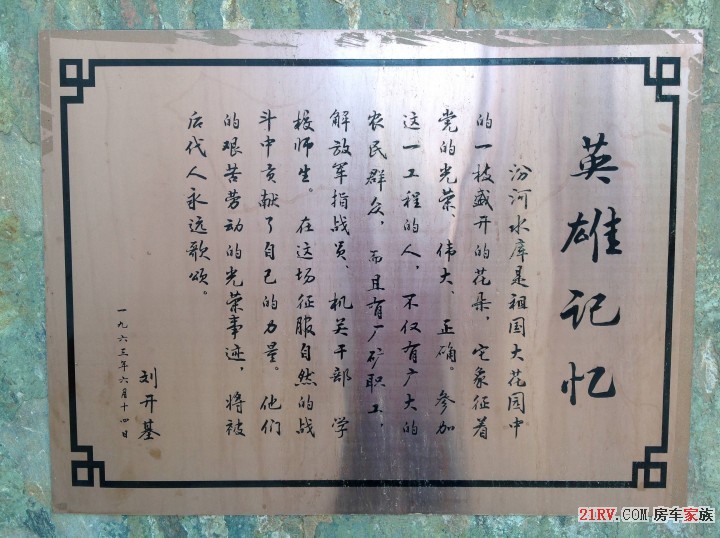 英雄记忆
汾河水库是祖国大花园中
的一枝盛开的花朵，它象征着
党的光荣、伟大、正确。参加
这一工程的人，不仅有广大的
农民群众，而且有厂矿职工、
解放军指战员、机关干部、学
校师生。在这场征服自然的战
斗中贡献了自己的力量。他们
的艰苦劳动的光荣事迹，将被
后代人永远歌颂。
刘开基
一九六三年六月十四日
21RV.COM 房车家族